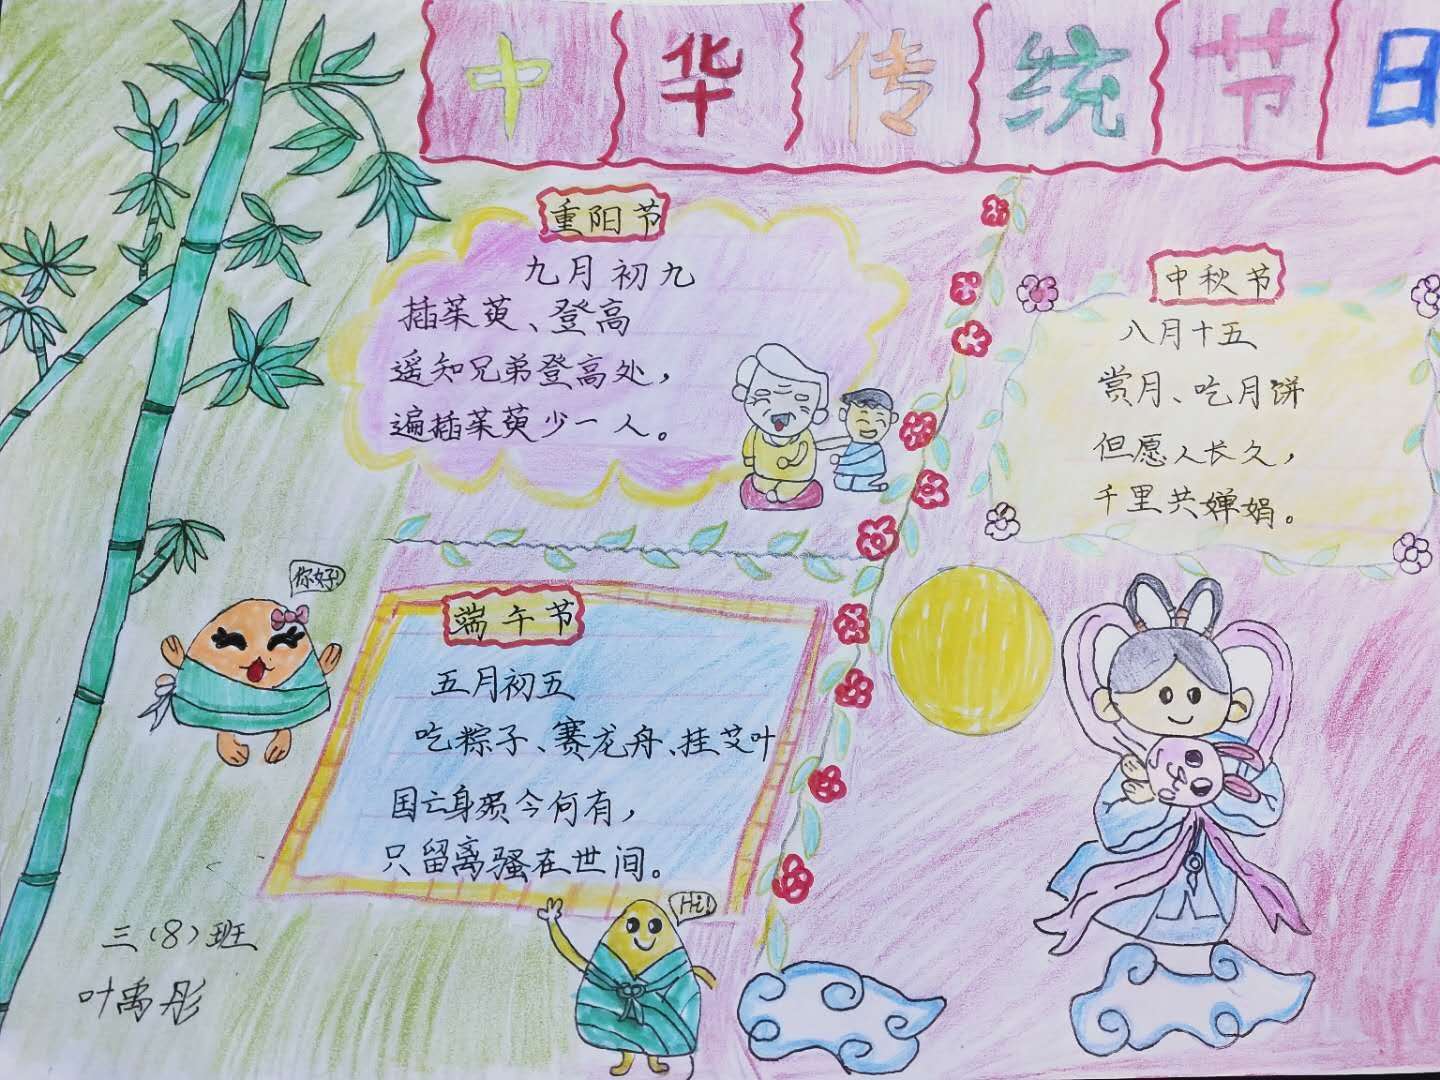 中华传统节日
重阳节
九月初九
插茱萸、登高
遥知兄弟登高处，
遍插茱萸少一人。
中秋节
八月十五
赏月、吃月饼
但愿人长久，
千里共婵娟。
你好!
端午节
五月初五
吃粽子、赛龙舟、挂艾叶
国亡身殒今何有，
只留离骚在世间。
Hi!
三(8)班
叶禹彤